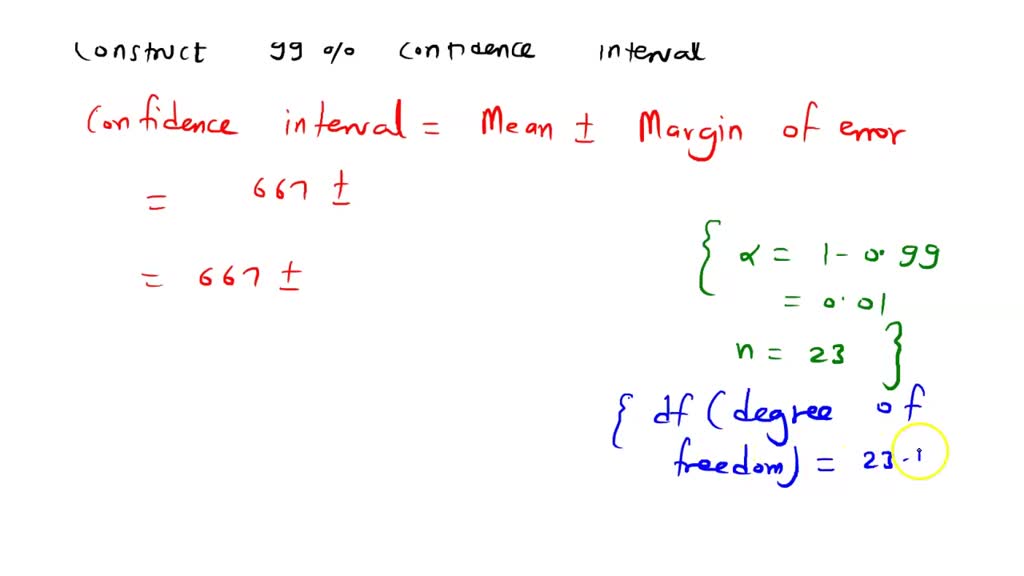 Construct 99 % confidence interval
Confidence interval = Mean ± Margin of error
= 667 ±
= 667 ±
{ α = 1 - 0.99
= 0.01
n = 23 }
{ df (degree of
freedom) = 23-1